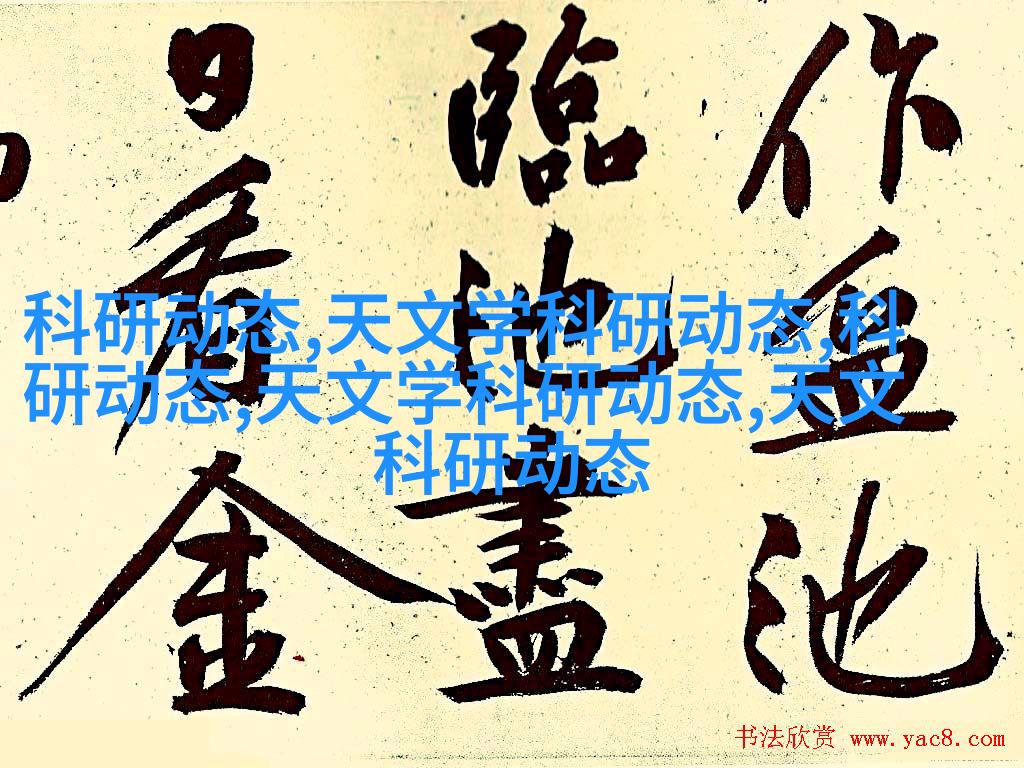 作盆池
臨池盡
日看金
科研动态,天文学科研动态,科
研动态,天文学科研动态,天文
科研动态
书法欣赏 www.yac8.com